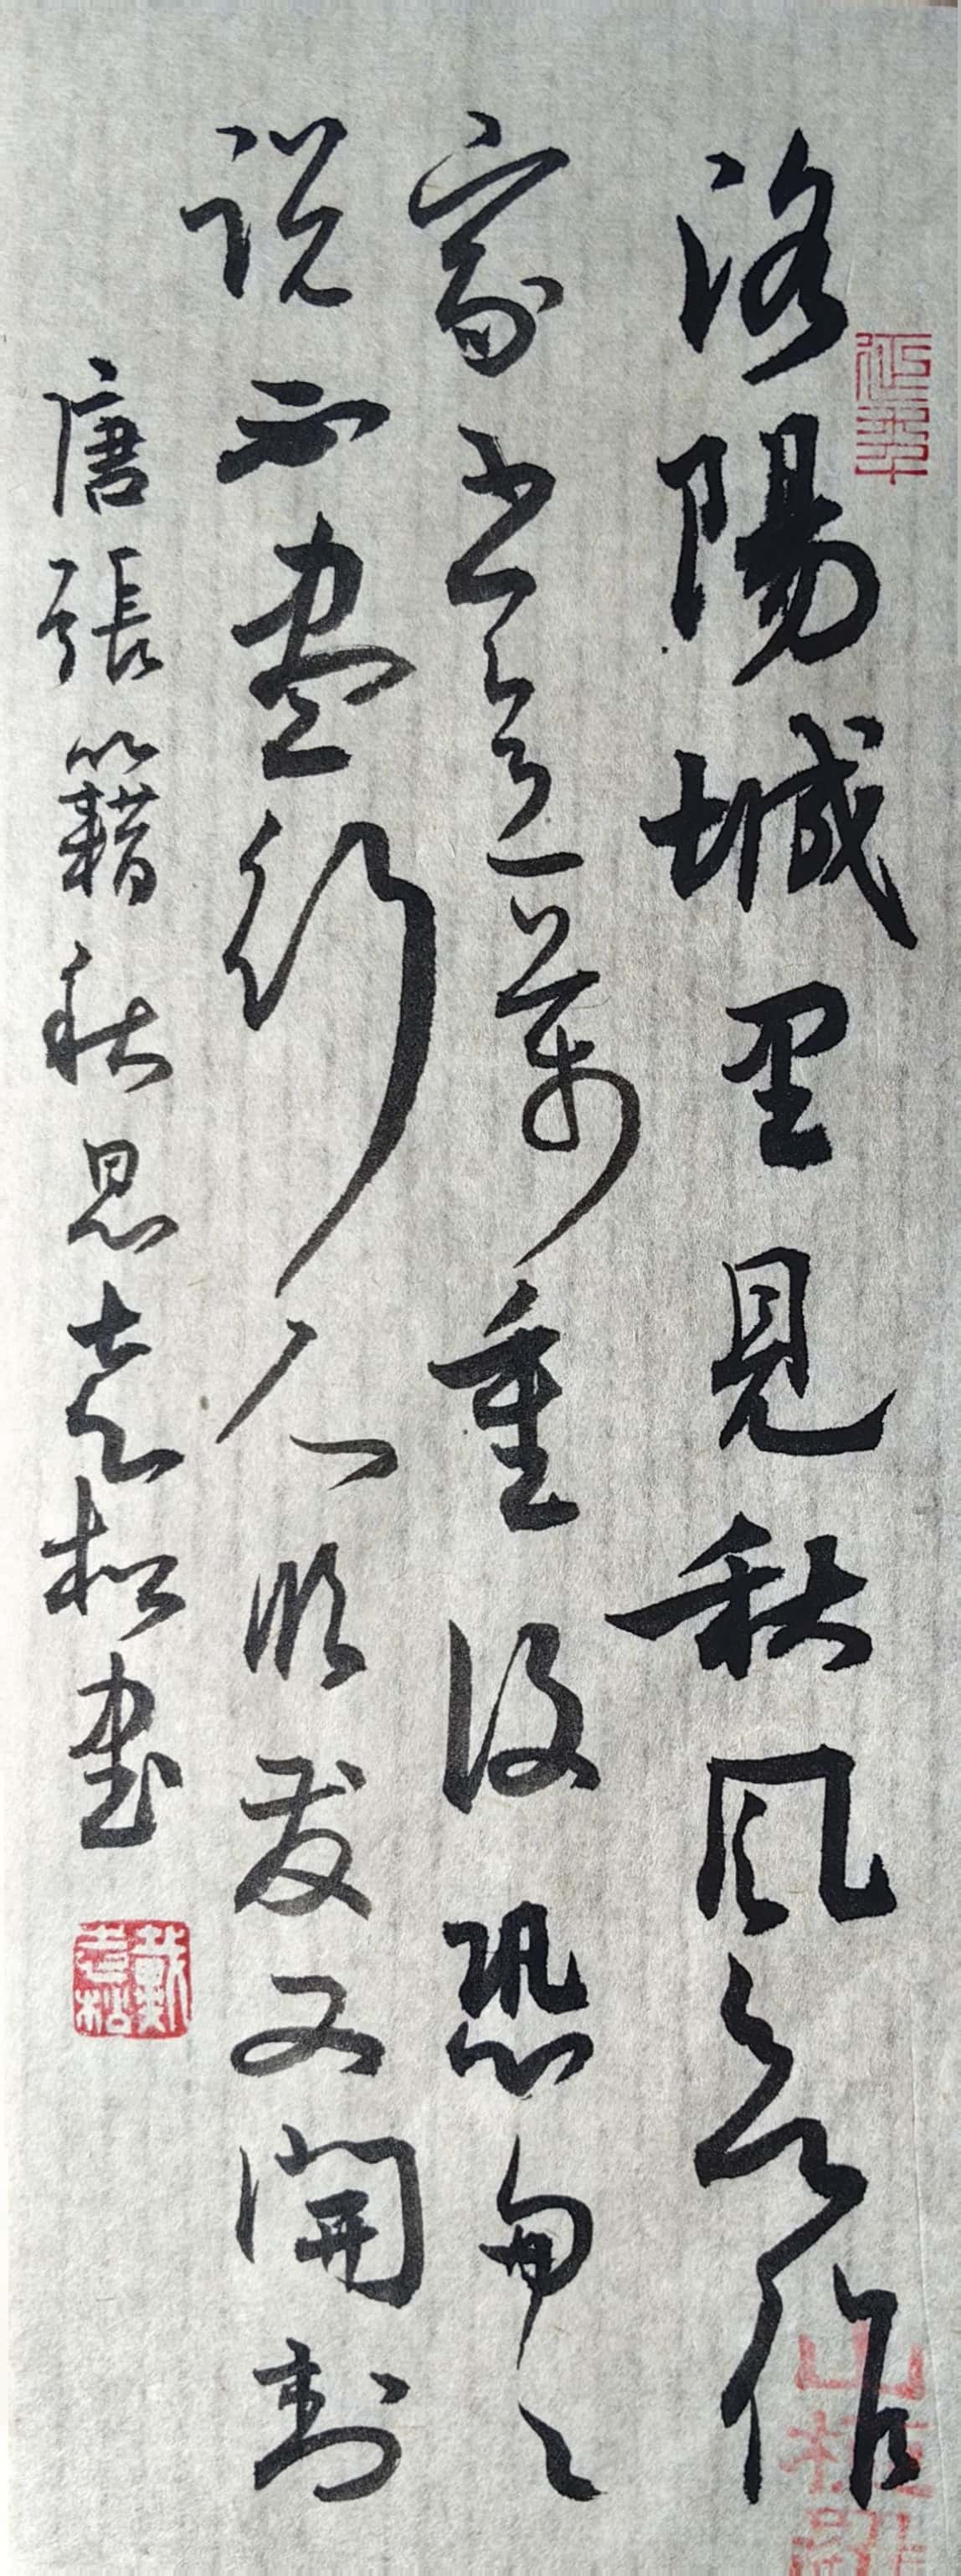 洛陽城里見秋風欲作
家书意萬重復恐匆々
說不盡行人臨發又開封
唐張籍秋思袁松書
延年